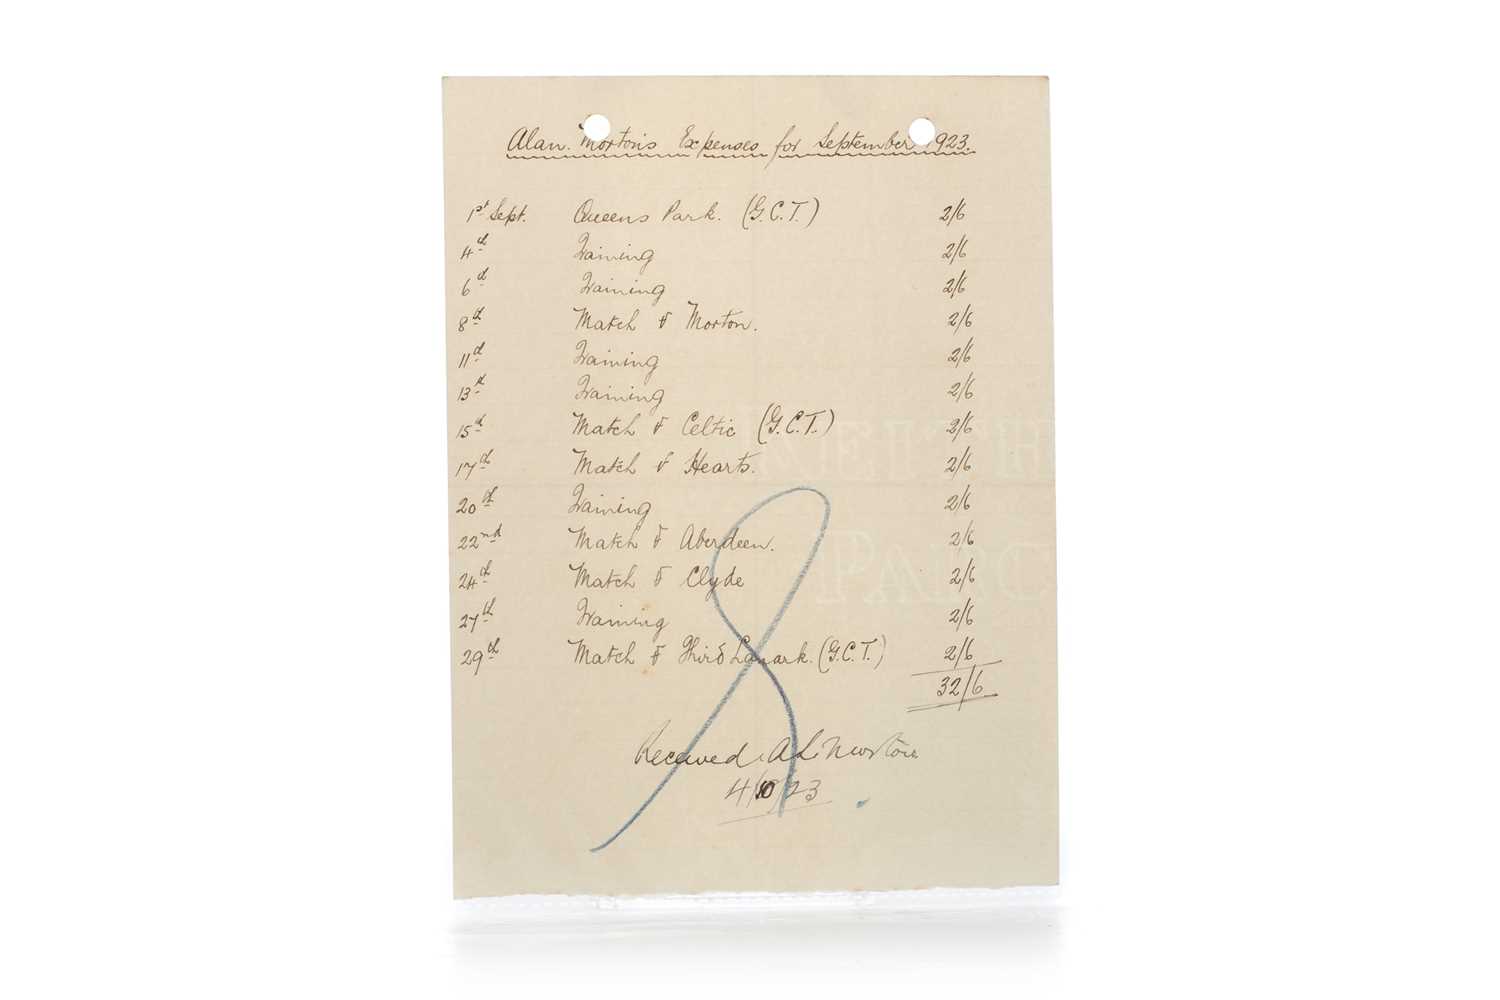 Alan. Morton's Expenses for September 1923.
1st Sept. Queens Park. (G.C.T.) 2/6
4th Training 2/6
6th Training 2/6
8th Match v Morton. 2/6
11th Training 2/6
13th Training 2/6
15th Match v Celtic (G.C.T.) 2/6
17th Match v Hearts. 2/6
20th Training 2/6
22nd Match v Aberdeen. 2/6
24th Match v Clyde 2/6
27th Training 2/6
29th Match v Third Lanark. (G.C.T.) 2/6
32/6
Received A L Morton
4/10/23
KEITH
PARC